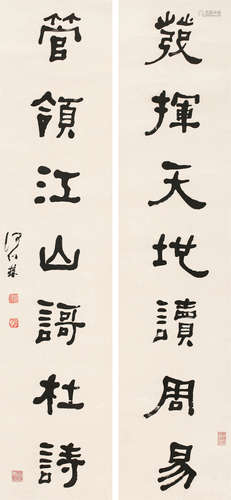 發揮天地讀周易
管領江山謌杜詩
何紹基